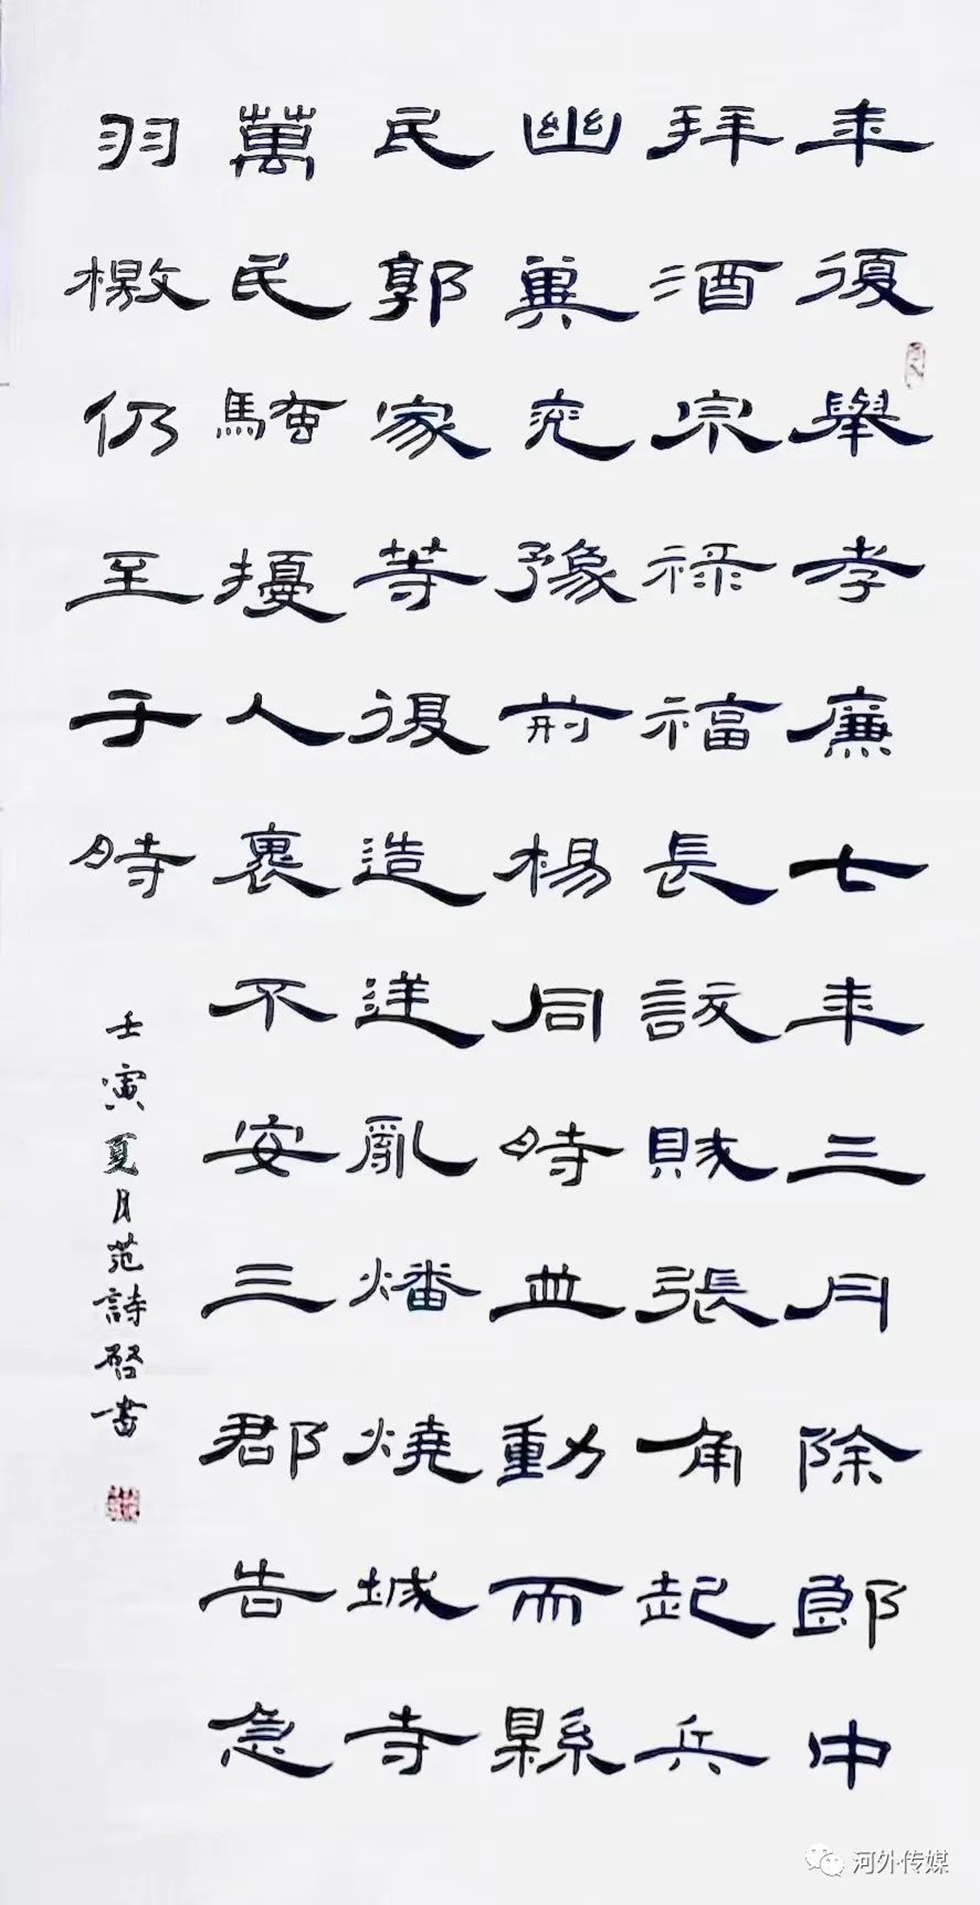 年復舉孝廉七年三月除郎中
拜酒宗祿福長訞賊張角起兵
幽冀兖豫荊楊同時並動而縣
民郭家等復造逆亂燔燒城寺
萬民騷擾人裹不安三郡告急
羽檄仍至于時
壬寅夏月范詩啓書
河外传媒